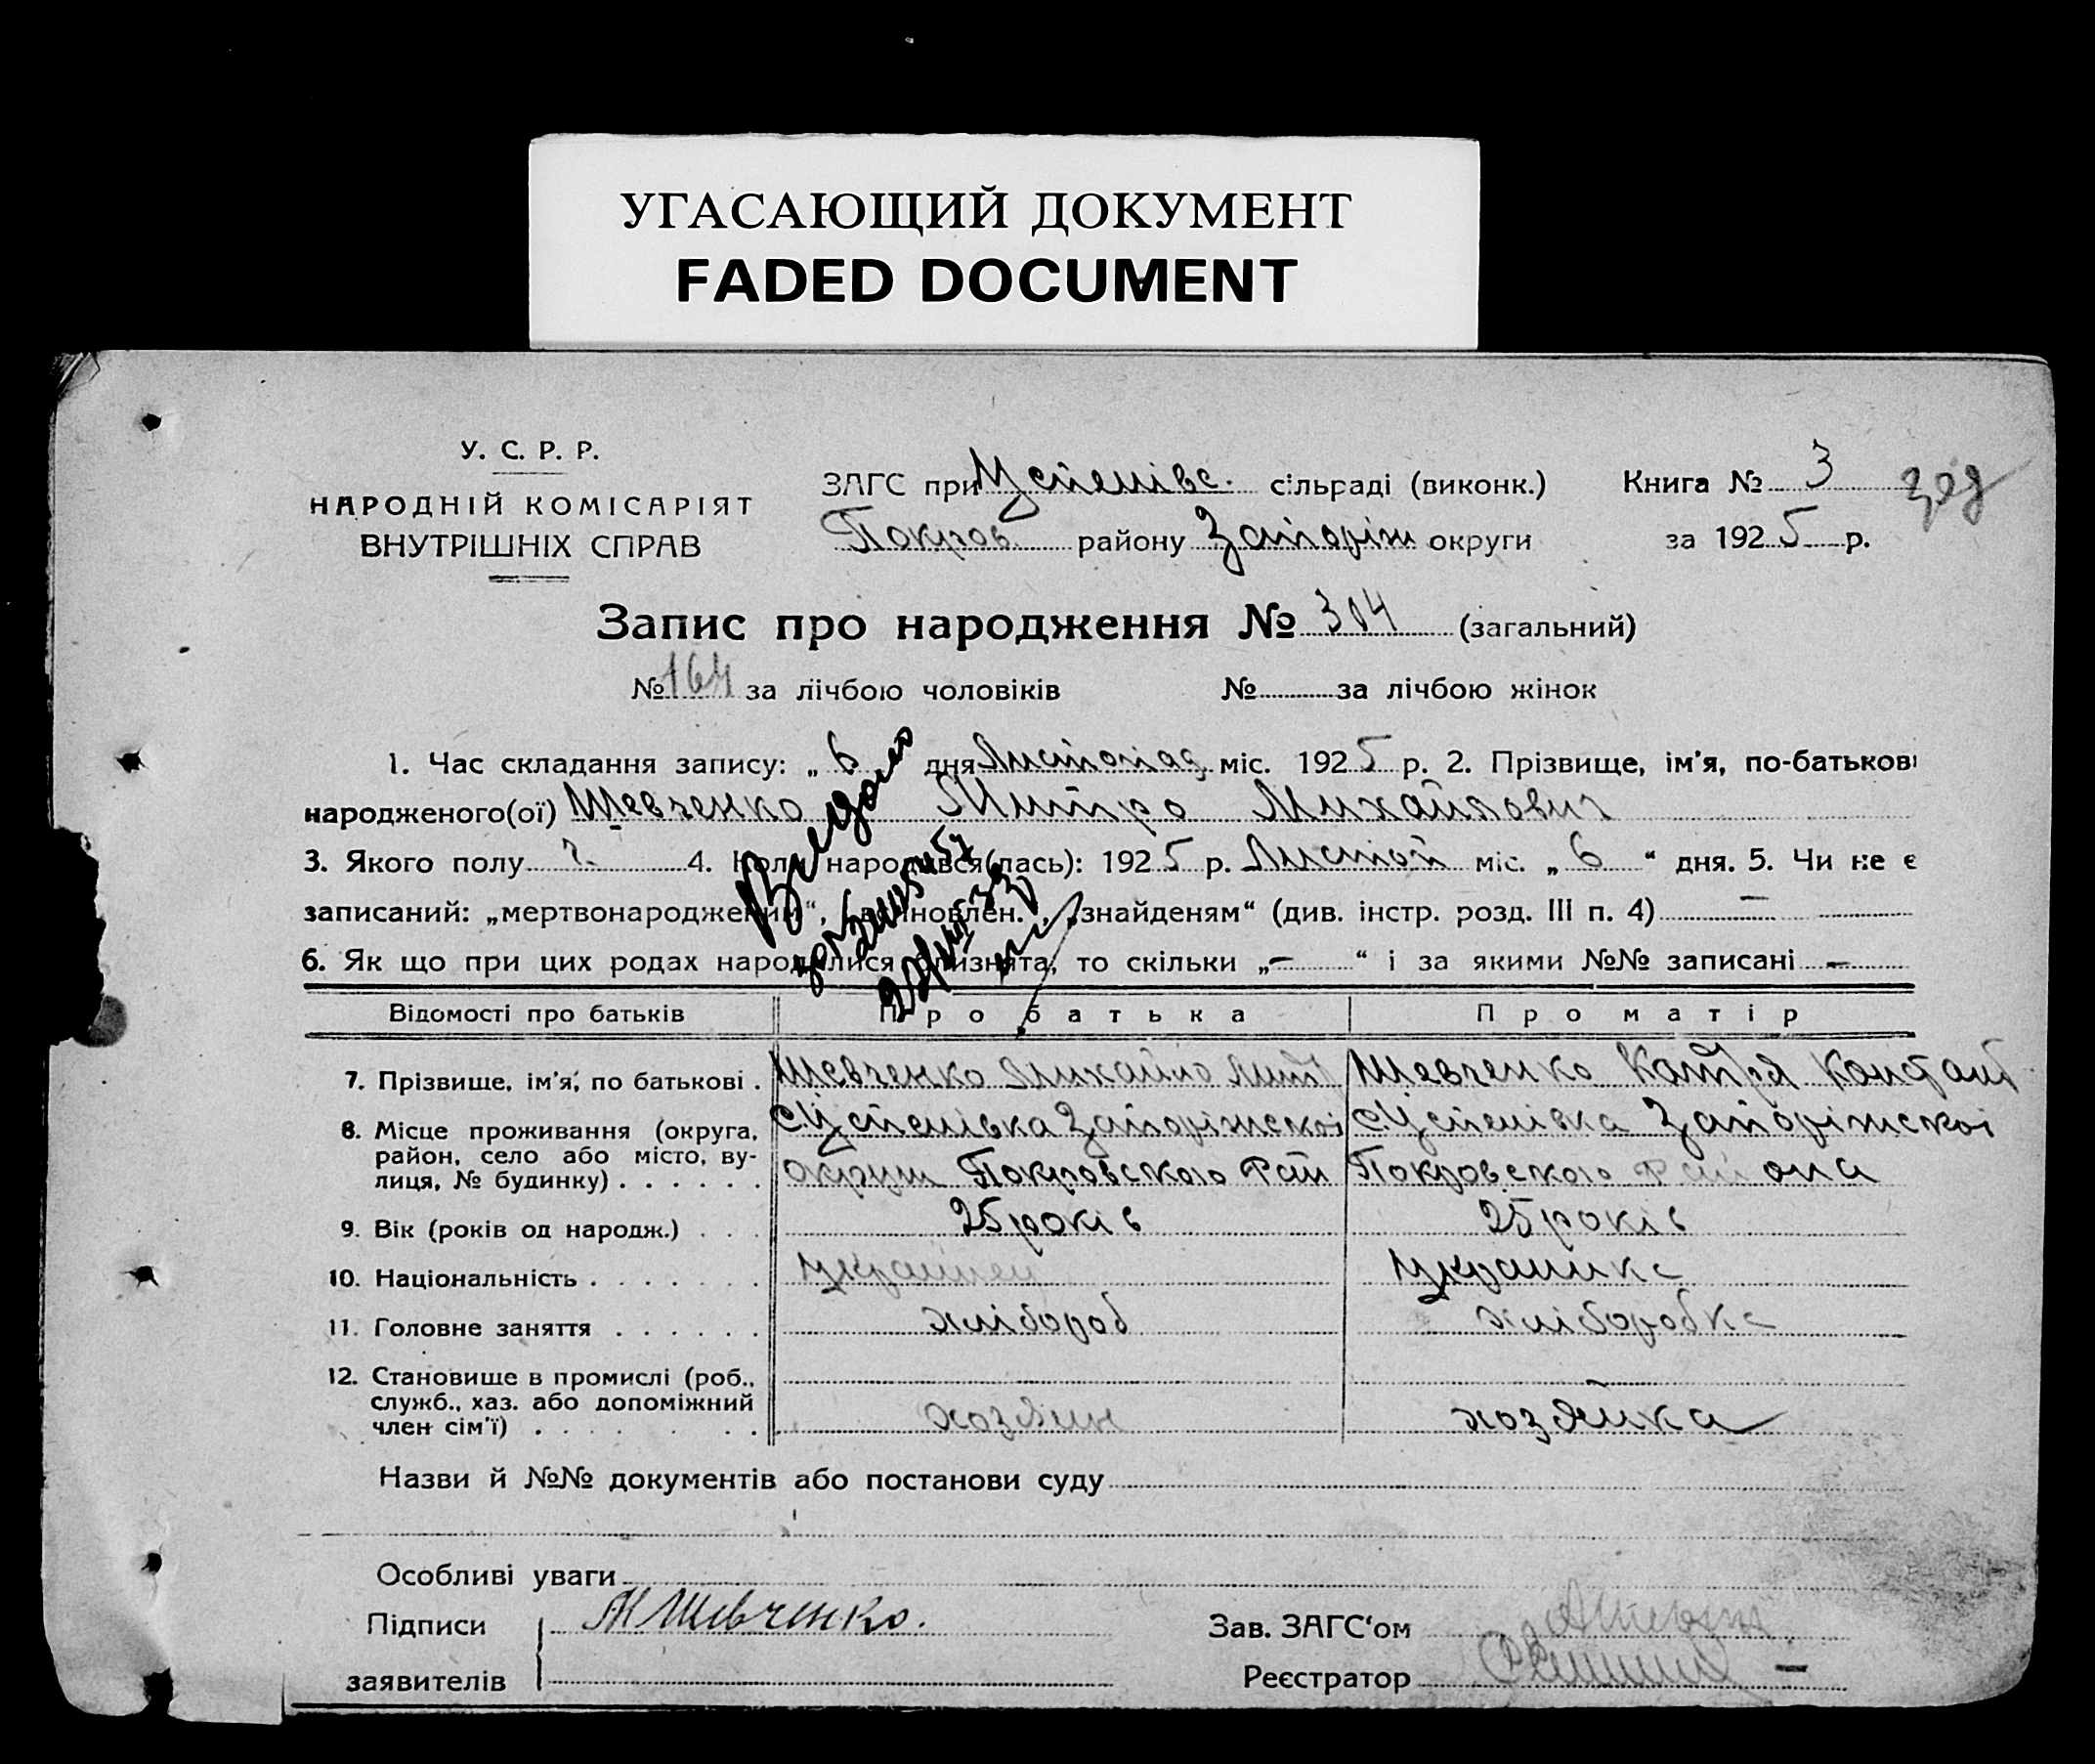 УГАСАЮЩИЙ ДОКУМЕНТ
FADED DOCUMENT
У. С. Р. Р.
НАРОДНІЙ КОМІСАРІЯТ
ВНУТРІШНІХ СПРАВ
ЗАГС при Успенівс. сільраді (виконк.)
Покров. району Запоріж округи
Книга № 3
за 1925 р.
Запис про народження № 304 (загальний)
№ 164 за лічбою чоловіків № за лічбою жінок
1. Час складання запису: „ 6 дня Листопад міс. 1925 р. 2. Прізвище, ім'я, по-батькові
народженого(ої) Шевченко Митро Михайлович
3. Якого полу ч. 4. Коли народився(лась): 1925 р. Листоп міс. „ 6 “ дня. 5. Чи не є
записаний: „мертвонародженим“, „ знайденям“ (див. інстр. розд. III п. 4) —
6. Як що при цих родах народилися близнята, то скільки „—“ і за якими №№ записані —
Відомості про батьків Про батька Про матір
7. Прізвище, ім'я, по батькові . Шевченко Михайло Шевченко Катря
8. Місце проживання (округа, с. Успенівка Запоріжскоі с. Успенівка Запоріжскоі
район, село або місто, ву-
лиця, № будинку) . . . . . . округи Покровского Рай Покровского Района
9. Вік (років од народж.) . . . 25 років 25 років
10. Національність . . . . . . . Українец Украинка
11. Головне заняття . . . . . . хлібороб хліборобка
12. Становище в промислі (роб.,
служб., хаз. або допоміжний
член сім'ї) . . . . . . хозяин хозяйка
Назви й №№ документів або постанови суду
Особливі уваги
Підписи М Шевченко. Зав. ЗАГС'ом
заявителів Реєстратор